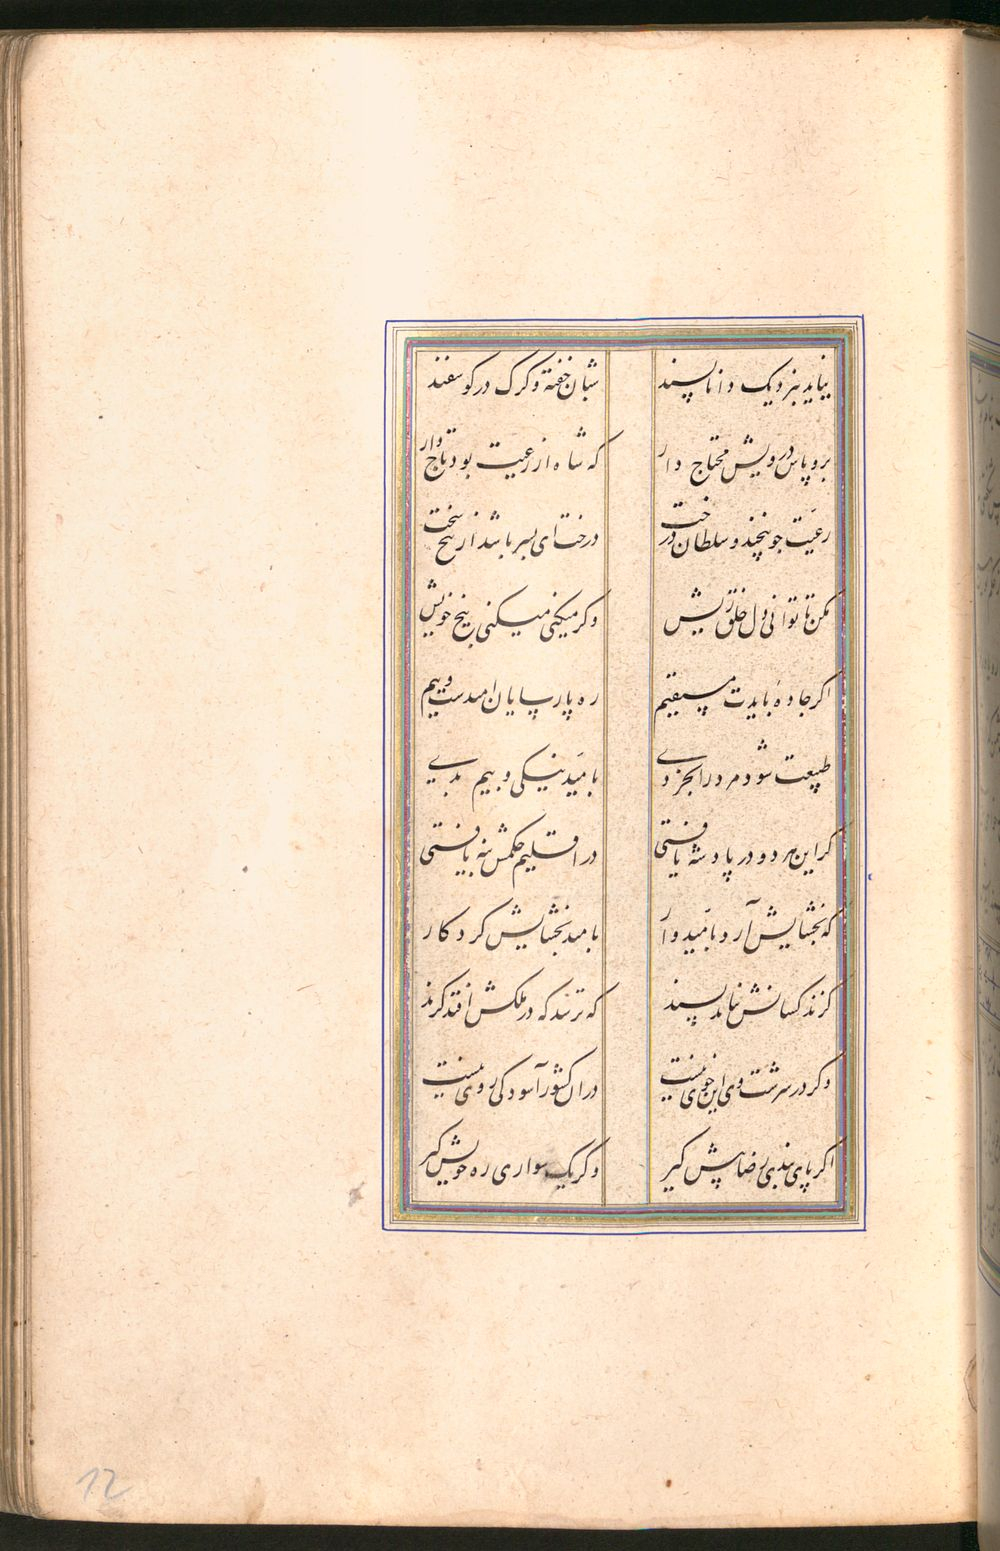 نیاید بنزدیک دانا پسند شبان خفته و کرک در کوسفند
برو پاس درویش محتاج دار که شاه از رعیت بود تاج دار
رعیت چو بیخند و سلطان درخت درخت ای پسر باشد از بیخ سخت
مکن تا توانی دل خلق ریش وکر میکنی میکنی بیخ خویش
اکر جاده بایدت مستقیم ره پارسایان امیدست و بیم
طبیعت شود مرد را بخردی بامید نیکی و بیم بدی
کر این هر دو در پادشه یافتی در اقلیم حکمش پنه یافتی
که بخشایش آرد بامیدوار بامید بخشایش کردکار
کزند کسانش نیاید پسند که ترسد که در ملکش افتد کزند
وکر در سرشت وی این خوی نیست در ان کشور آسودکی روی نیست
اکر پای بندی رضا پیش کیر وکر یک سواری ره خویش کیر
12